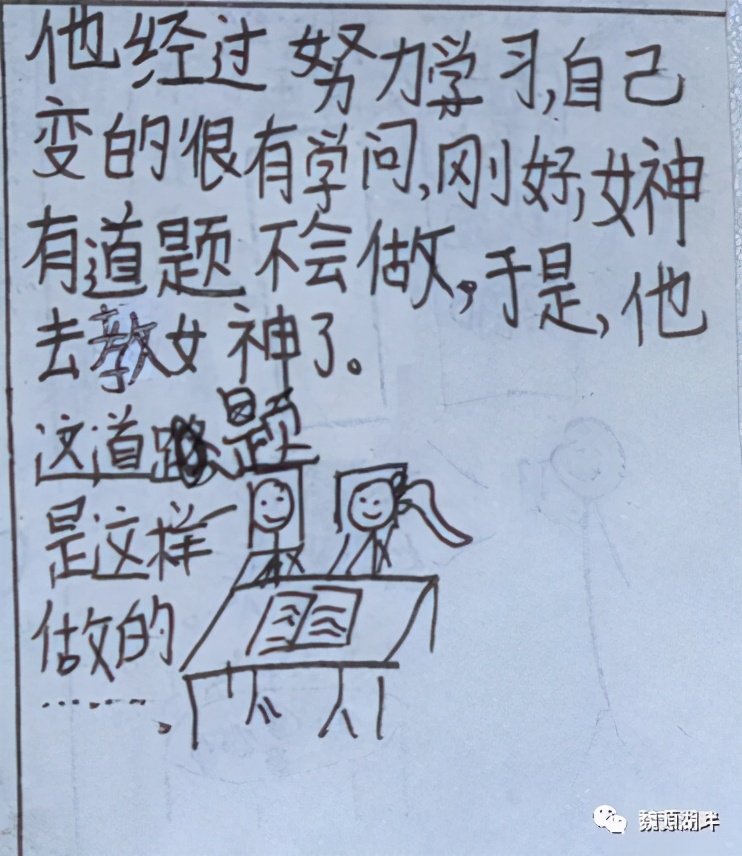 他经过努力学习,自己
变的很有学问,刚好,女神
有道题不会做。于是,他
去教女神了。
这道题
是这样
做的
………